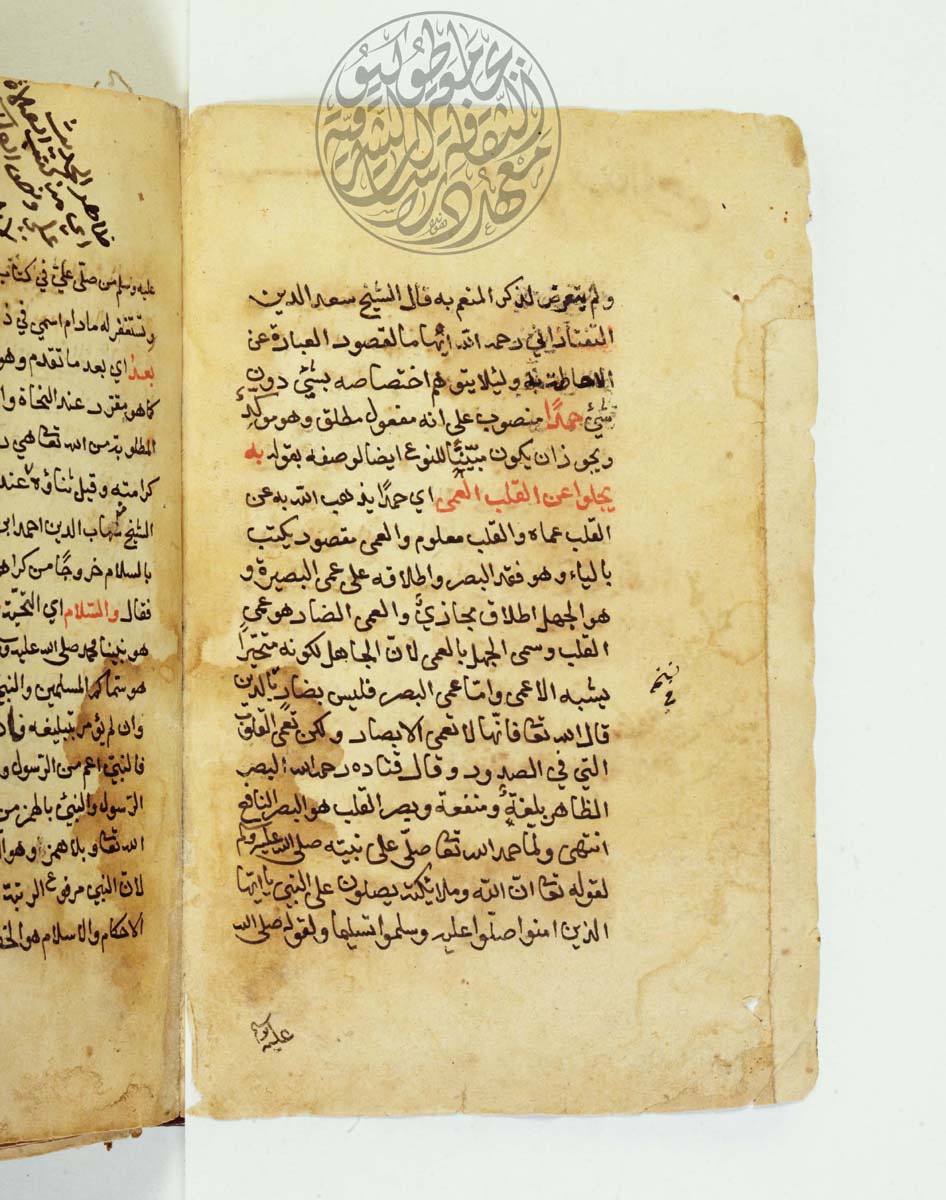 ولم يتعرض لذكر المنعم به قال الشيخ سعد الدين
التفتازاني رحمه الله ايهاما لقصور العبارة عن
الاحاطة به ولئلا يتوهم اختصاصه بشئ دون
شئ حمدًا منصوب على انه مفعول مطلق وهو موكدٌ
ويجوز ان يكون مبيّنًا للنوع ايضا لوصفه بقوله به
يجلوا عن القلب العمى اي حمدا يذهب الله به عن
القلب عماه والقلب معلوم والعمى مقصور يكتب
بالياء وهو فقد البصر واطلاقه على عمى البصيرة و
هو الجهل اطلاق مجازيٌ والعمى الضار هو عمى
القلب وسمى الجهل بالعمى لانّ الجاهل لكونه متحيّرًا
يشبه الاعمى وامّا عمى البصر فليس بضارٍّ بالدين
قال الله تعا فانّها لا تعمى الابصار ولكن تعمى القلوب
التي في الصدور وقال قتاده رحمه الله البصر
الظاهر بلغةٌ ومنفعة وبصر القلب هو البصر النافع
انتهى ولمّا حمد الله تعا صلّى على نبيّه صلى الله عليه وسلم
لقوله تعا انّ الله وملائكته يصلون على النبي يا ايّها
الذين امنوا صلّوا عليه وسلموا تسليما ولقوله صلى الله
عليه وسلم من صلّى عليّ في كتاب
وتستغفر له ما دام اسمي في ذ
بعد اي بعد ما تقدم وهو
كما هو مقرر عند النحاة وا
المطلوبة من الله تعا هي ر
كرامته وقيل ثناؤه عند
الشيخ شهاب الدين احمد ابن
بالسلام خروجًا من كراهـ
فقال والسّلام اي التحيّة
هو نبينا محمد صلى الله عليه و
هو سمّاكم المسلمين والنبي
وان لم يؤمر بتبليغه فان
فالنبيّ اعم من الرّسول و
الرّسول والنبيّ بالهمز من
الله تعا وبلا همز وهو ال
لانّ النبي مرفوع الرتبة
الاحكام والاسلام هو الخضـ